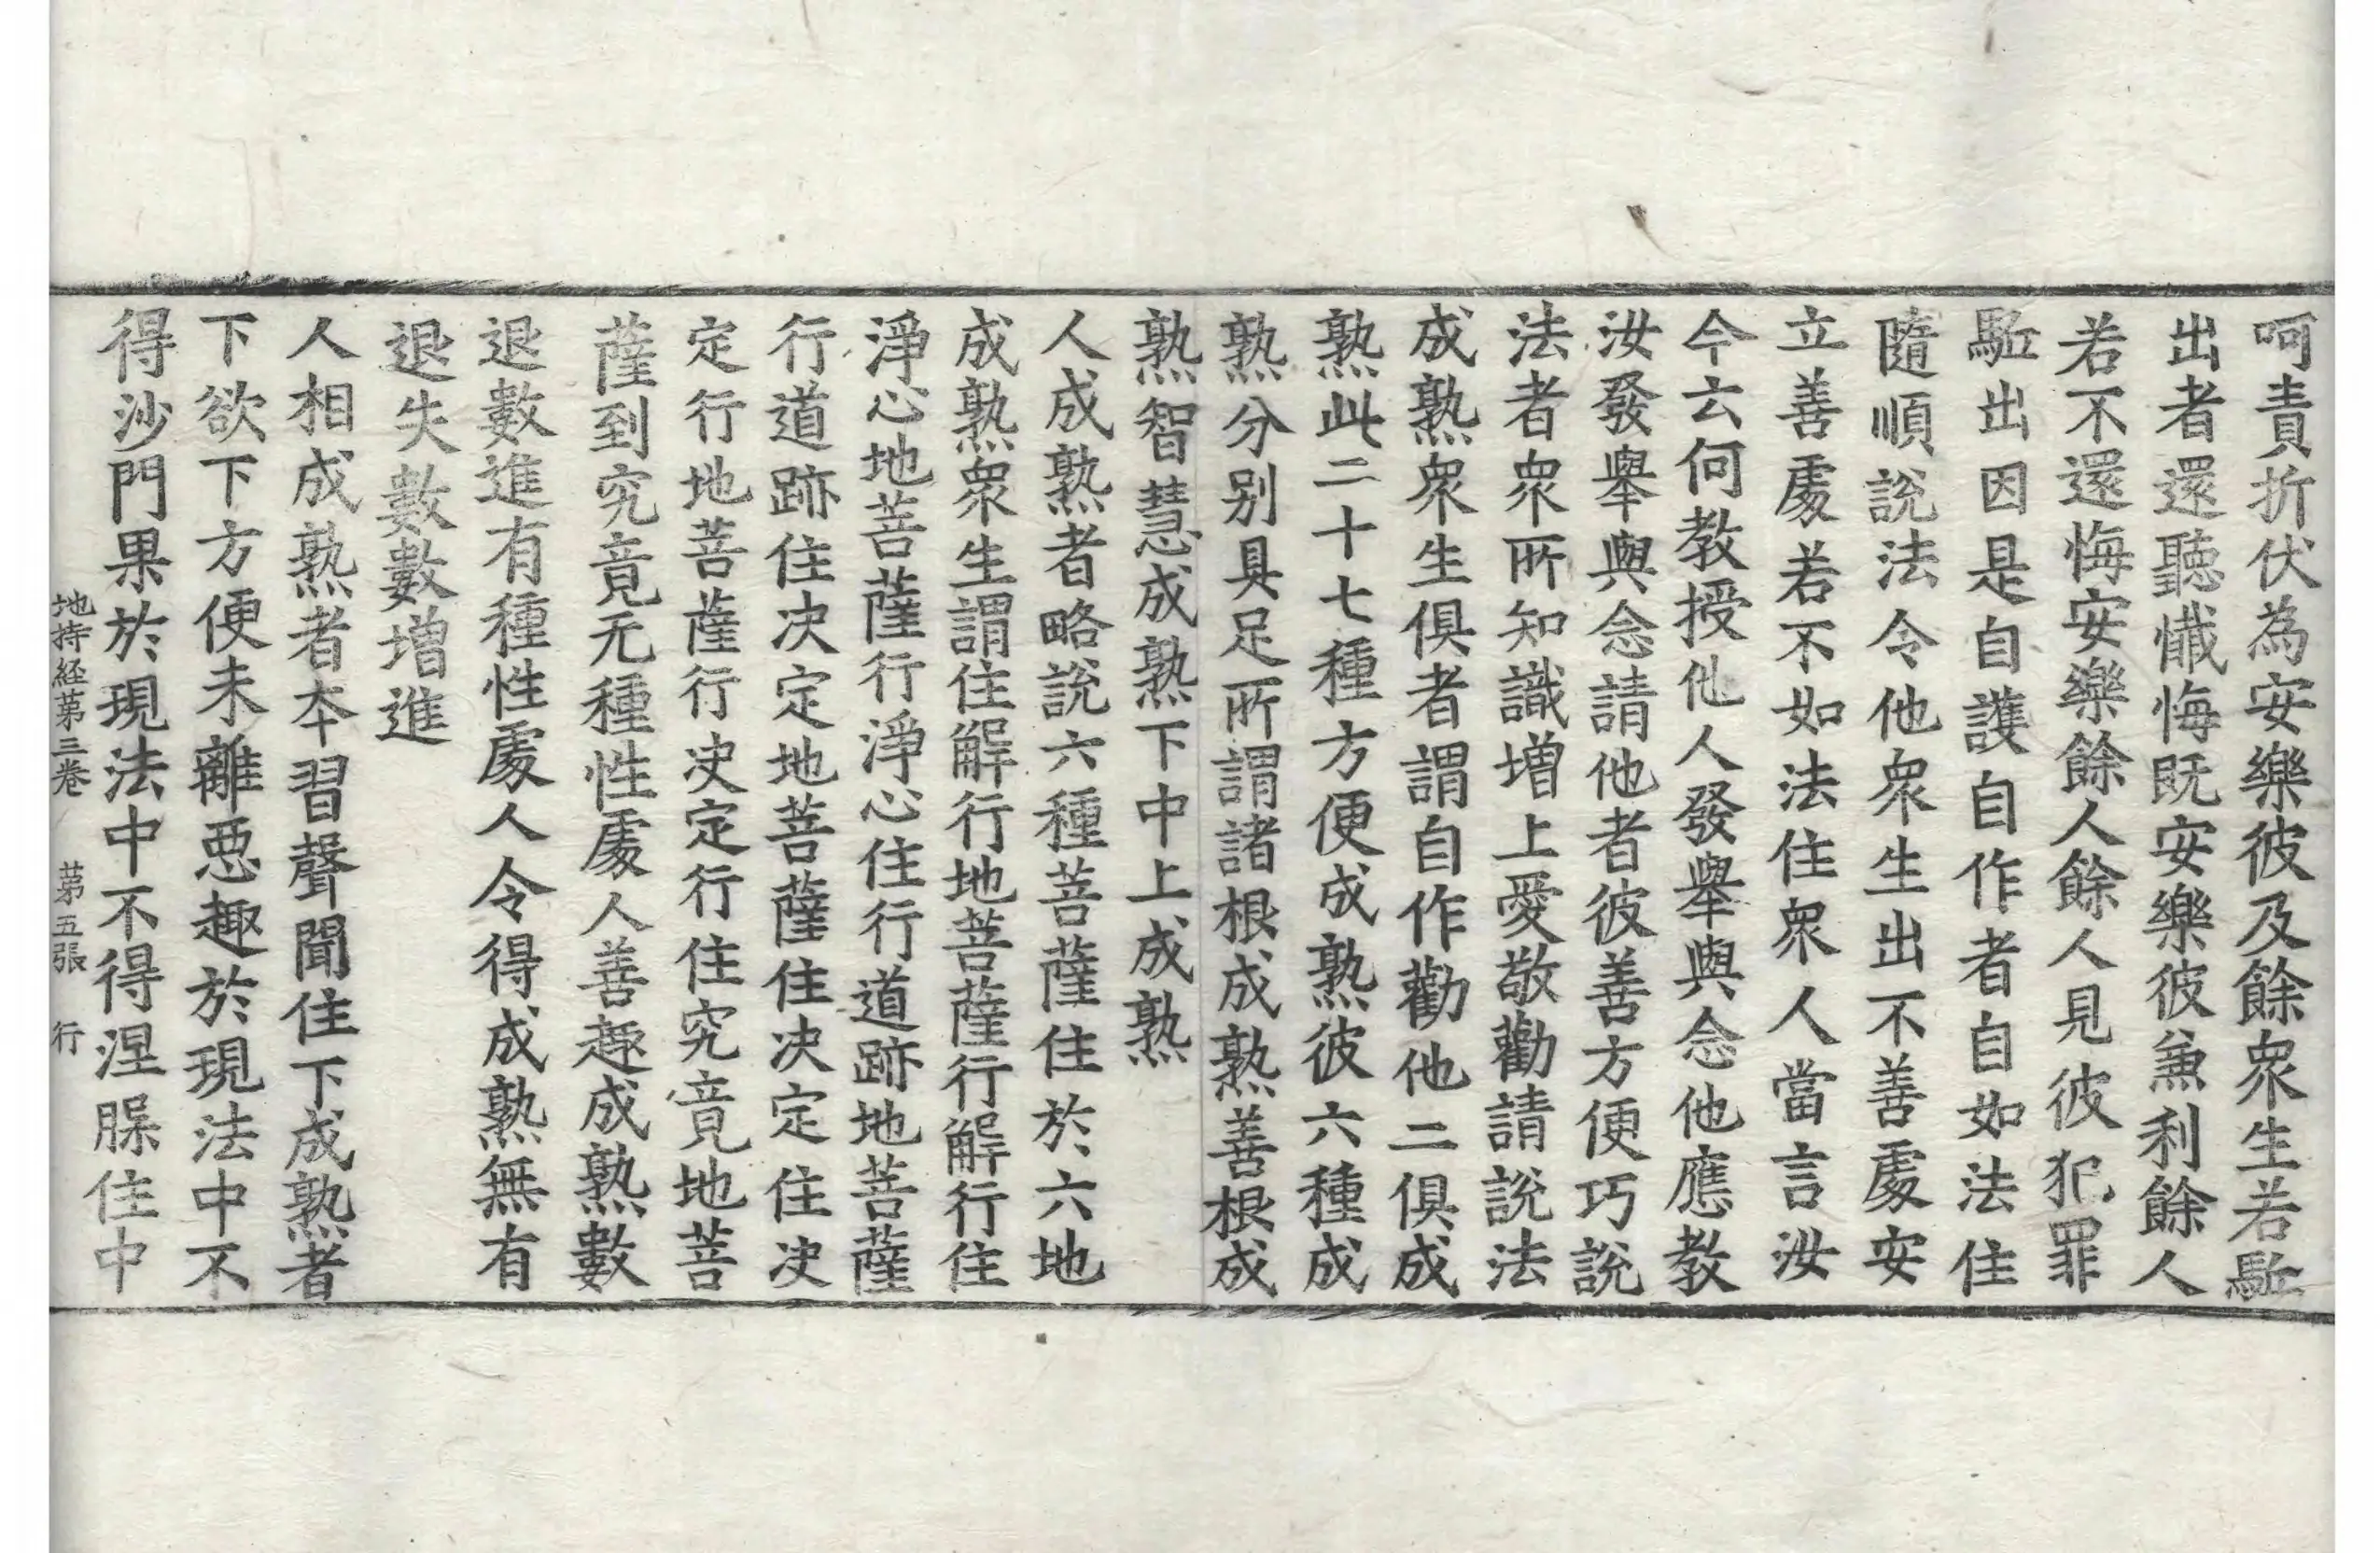 呵責折伏為安樂彼及餘衆生若駈
出者還聽懺悔既安樂彼兼利餘人
若不還悔安樂餘人餘人見彼犯罪
駈出因是自護自作者自如法住
隨順說法令他衆生出不善處安
立善處若不如法住衆人當言汝
今云何教授他人發舉與念他應教
汝發舉與念請他者彼善方便巧說
法者衆所知識增上愛敬勸請說法
成熟衆生俱者謂自作勸他二俱成
熟此二十七種方便成熟彼六種成
熟分別具足所謂諸根成熟善根成
熟智慧成熟下中上成熟
人成熟者略說六種菩薩住於六地
成熟衆生謂住解行地菩薩行解行住
淨心地菩薩行淨心住行道跡地菩薩
行道跡住决定地菩薩住决定住决
定行地菩薩行决定行住究竟地菩
薩到究竟无種性處人善趣成熟數
退數進有種性處人令得成熟無有
退失數數增進
人相成熟者本習聲聞住下成熟者
下欲下方便未離惡趣於現法中不
得沙門果於現法中不得涅槃住中
地持経第三卷　第五張　行